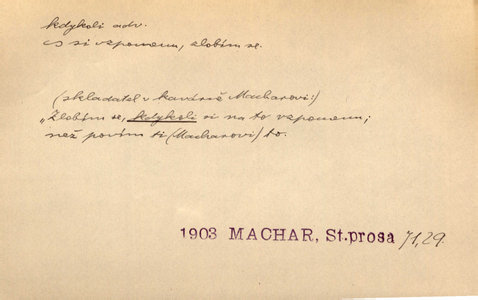 kdykoli adv.
co si vzpomenu, zlobím se.
(skladatel v kavárně Macharovi:)
„Zlobím se, kdykoli si na to vzpomenu;
než povím ti (Macharovi) to.
1903 MACHAR, St.prosa 71,29